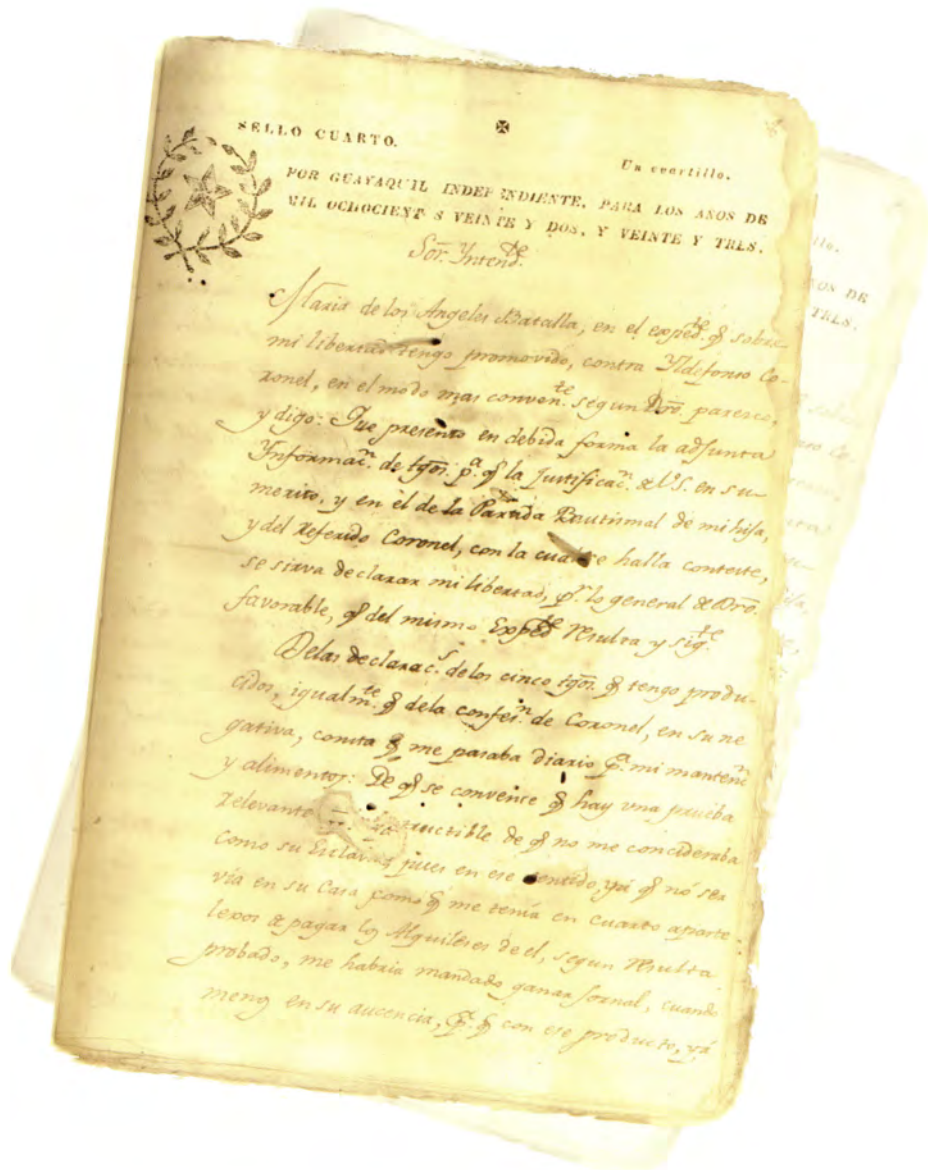 SELLO CUARTO.
Un cuartillo.
POR GUAYAQUIL INDEPENDIENTE, PARA LOS AÑOS DE
MIL OCHOCIENTOS VEINTE Y DOS, Y VEINTE Y TRES.
Sor. Yntend.te
Maria de los Angeles Batalla, en el exped.te q.e sobre
mi libertad tengo promovido, contra Yldefonso Co-
ronel, en el modo mas conven.te segun Dro. paresco,
y digo: Que presento en debida forma la adjunta
Ynformac.n de tgos. p.a q.e la justificac.n de VS. en su
merito, y en el de la Partida Bautismal de mi hija,
y del referido Coronel, con la cual se halla conteste,
se sirva declarar mi libertad, p.r lo general de Dro.
favorable, q.e del mismo Exped.te resulta y sig.te
Delas declarac.s delos cinco tgos. q.e tengo produ-
cidos, igualm.te q.e dela confes.n de Coronel, en su ne
gativa, consta q.e me pasaba diario p.a mi manten.n
y alimentos: De q.e se convence q.e hay una prueba
relevante tructible de q.e no me concideraba
como su Esclava; pues en ese sentido, yá q.e nó ser
vía en su Casa como q.e me tenía en cuarto aparte
lexos de pagar los Alquileres de el, segun resulta
probado, me habria mandado ganar jornal, cuando
menos en su aucencia, p.a q.e con ese producto, yá
llo.
ÑOS DE
TRES.